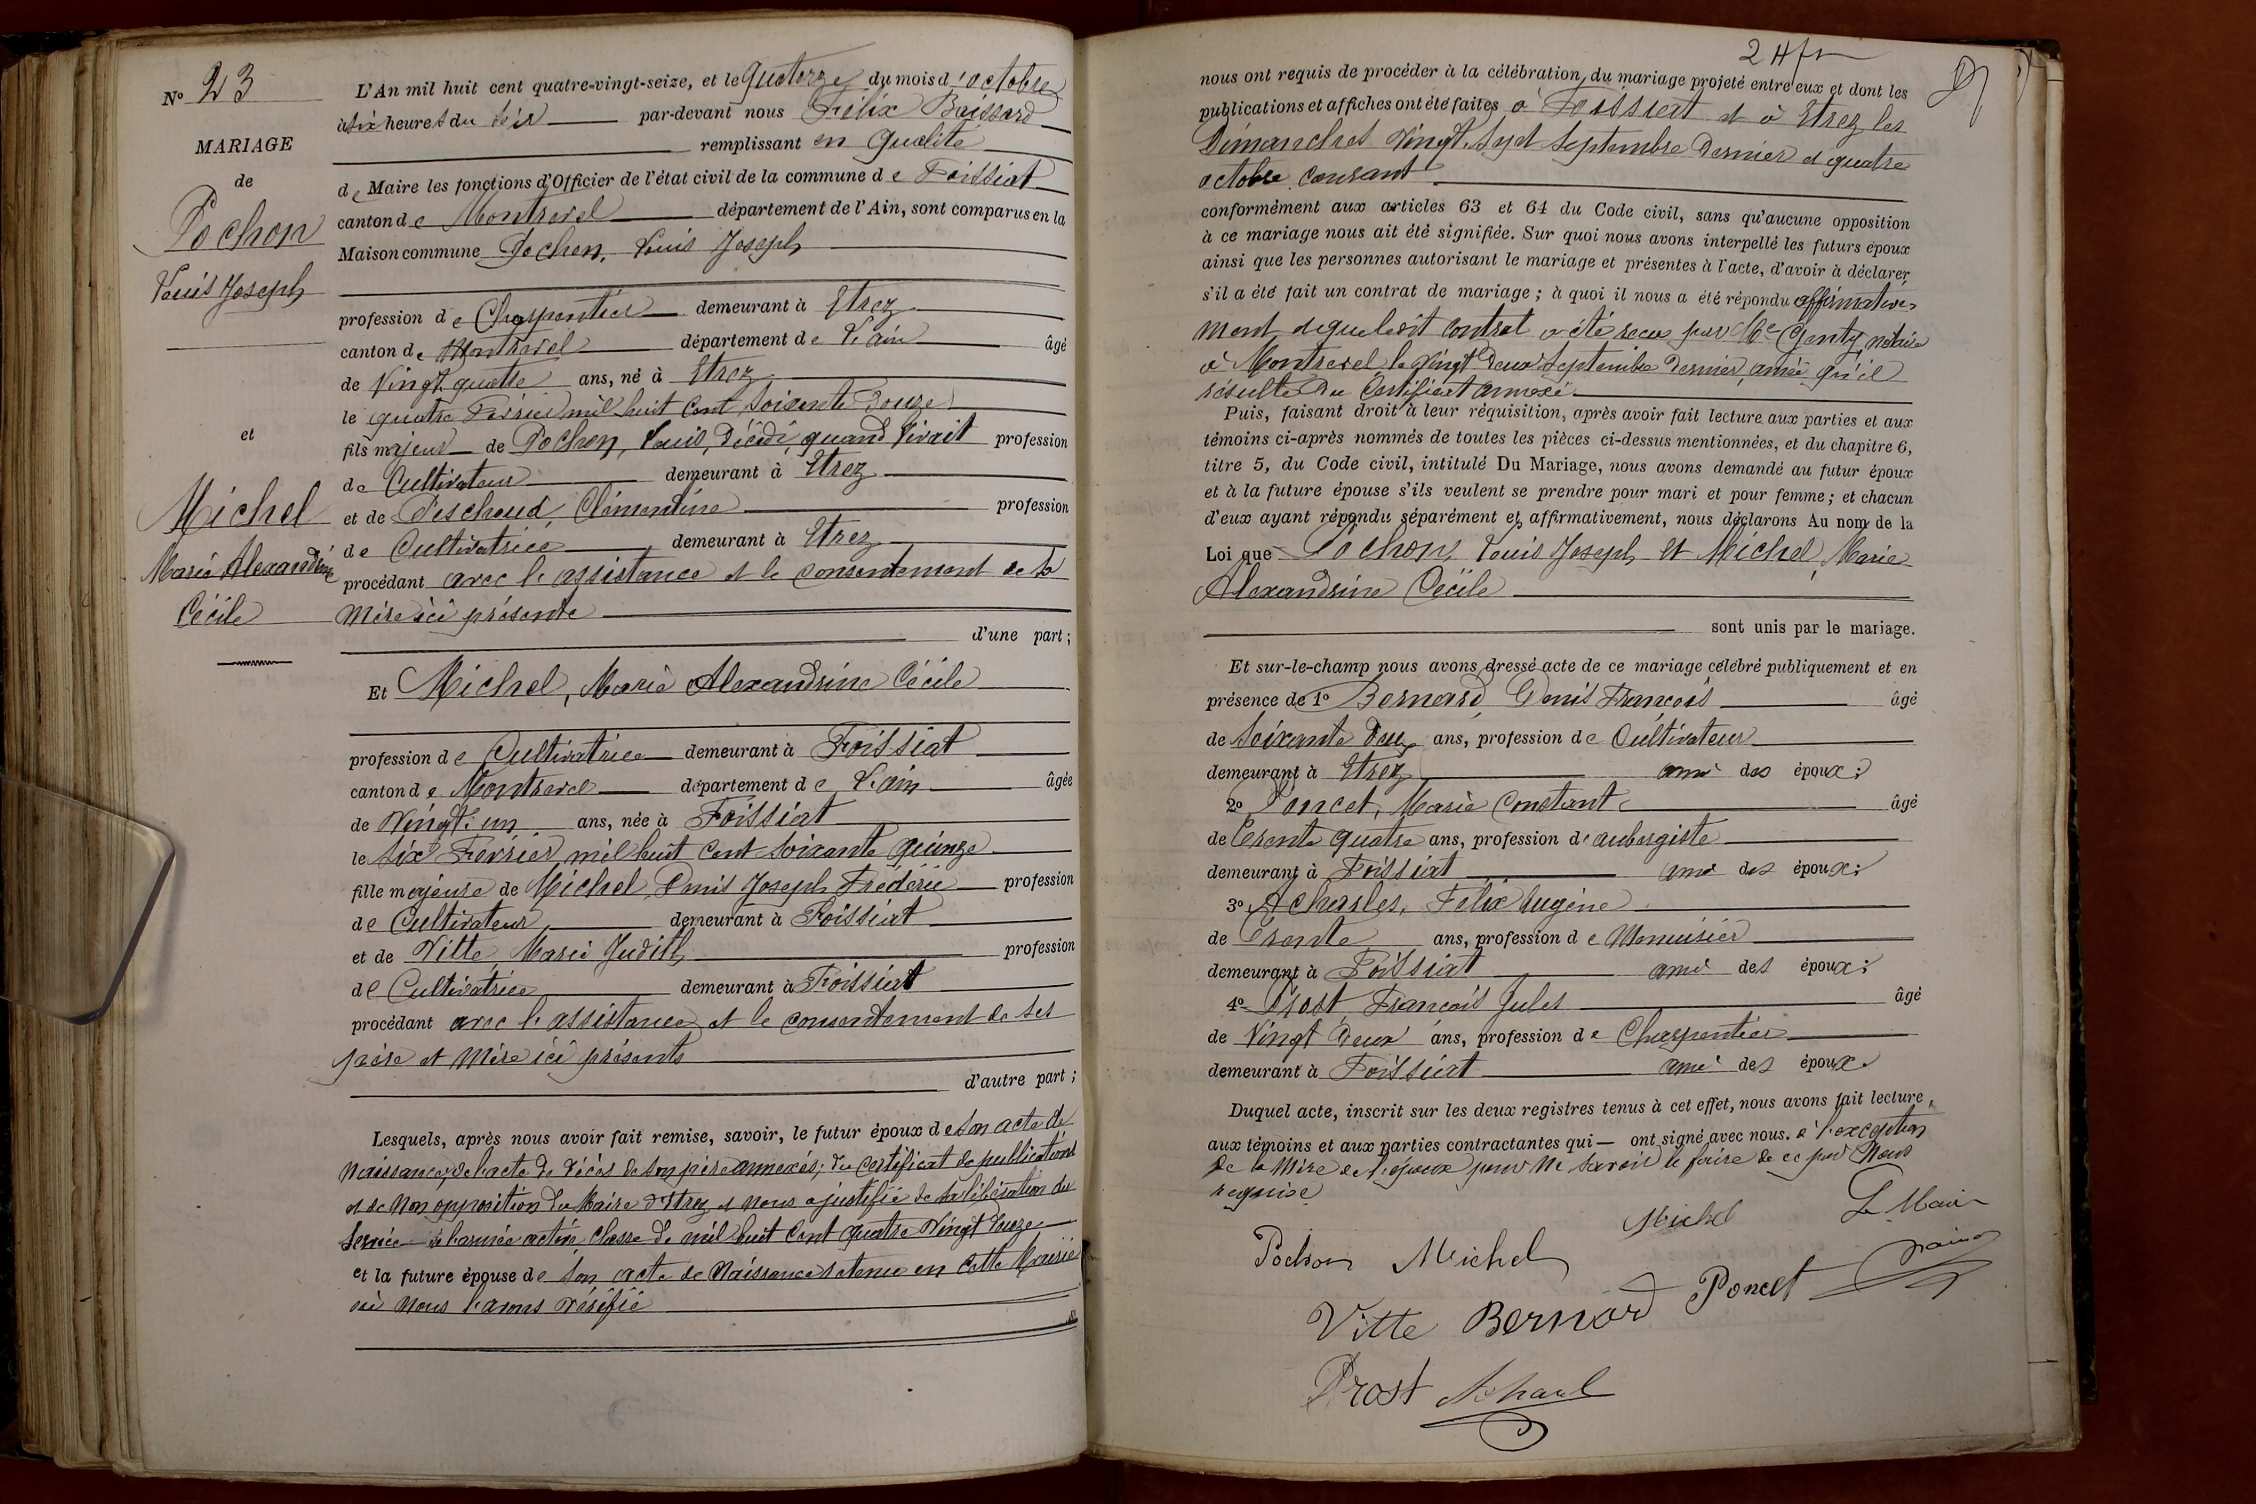 N° 23
MARIAGE
de
Pochon
Louis Joseph
et
Michel
Marie Alexandrine
Cécile
L'An mil huit cent quatre-vingt-seize, et le quatorze du mois d'octobre
à six heures du soir par-devant nous Félix
remplissant en qualité
de Maire les fonctions d'Officier de l'état civil de la commune de Foissiat
canton de Montrevel département de l'Ain, sont comparus en la
Maison commune Pochon, Louis Joseph
profession de Charpentier demeurant à Etrez
canton de Montrevel département de l'ain âgé
de Vingt quatre ans, né à Etrez
le quatre Février mil huit cent soixante douze
fils majeur de Pochon, Louis, Décédé, quand vivait profession
de Cultivateur demeurant à Etrez
et de Peschoud, Clémentine profession
de Cultivatrice demeurant à Etrez
procédant avec l'assistance et le consentement de sa
mère ici présente
d'une part ;
Et Michel, Marie Alexandrine Cécile
profession de Cultivatrice demeurant à Foissiat
canton de Montrevel département de l'ain âgée
de Vingt un ans, née à Foissiat
le six Février mil huit cent soixante quinze
fille majeure de Michel Denis Joseph Frédéric profession
de Cultivateur demeurant à Foissiat
et de Vitte, Marie Judith profession
de Cultivatrice demeurant à Foissiat
procédant avec l'assistance et le consentement de ses
père et mère ici présents
d'autre part ;
Lesquels, après nous avoir fait remise, savoir, le futur époux de son acte de
Naissance, de l'acte de décès de son père annexés, du certificat de publications
et de non opposition du Maire d'Etrez et nous a justifié de sa libération du
service de l'armée active classe de mil huit cent quatre vingt douze
et la future épouse de son acte de Naissance retenu en cette Mairie
où nous l'avons vérifié
nous ont requis de procéder à la célébration du mariage projeté entre eux et dont les
publications et affiches ont été faites à Foissiat et à Etrez les
Dimanches vingt sept septembre dernier et quatre
octobre courant
conformément aux articles 63 et 64 du Code civil, sans qu'aucune opposition
à ce mariage nous ait été signifiée. Sur quoi nous avons interpellé les futurs époux
ainsi que les personnes autorisant le mariage et présentes à l'acte, d'avoir à déclarer,
s'il a été fait un contrat de mariage ; à quoi il nous a été répondu affirmative-
ment et que ledit contrat a été reçu par Me Genty notaire
à Montrevel le vingt deux septembre dernier, ainsi qu'il
résulte du certificat annexé
Puis, faisant droit à leur réquisition, après avoir fait lecture aux parties et aux
témoins ci-après nommés de toutes les pièces ci-dessus mentionnées, et du chapitre 6,
titre 5, du Code civil, intitulé Du Mariage, nous avons demandé au futur époux
et à la future épouse s'ils veulent se prendre pour mari et pour femme ; et chacun
d'eux ayant répondu séparément et affirmativement, nous déclarons Au nom de la
Loi que Pochon Louis Joseph et Michel, Marie
Alexandrine Cécile
sont unis par le mariage.
Et sur-le-champ nous avons dressé acte de ce mariage célébré publiquement et en
présence de 1° Bernard Denis François âgé
de soixante deux ans, profession de Cultivateur
demeurant à Etrez ami des époux ;
2° Poncet, Marie Constant âgé
de Trente quatre ans, profession d'aubergiste
demeurant à Foissiat ami des époux ;
3° Acharles, Félix Eugène
de Trente ans, profession de Menuisier
demeurant à Foissiat ami des époux ;
4° Prost, François Jules âgé
de Vingt deux ans, profession de Charpentier
demeurant à Foissiat ami des époux.
Duquel acte, inscrit sur les deux registres tenus à cet effet, nous avons fait lecture,
aux témoins et aux parties contractantes qui ont signé avec nous. à l'exception
de la mère de l'époux pour ne savoir le faire de ce par Nous
requise
Pochon Michel Michel Le Maire
Vitte Bernard Poncet
Prost